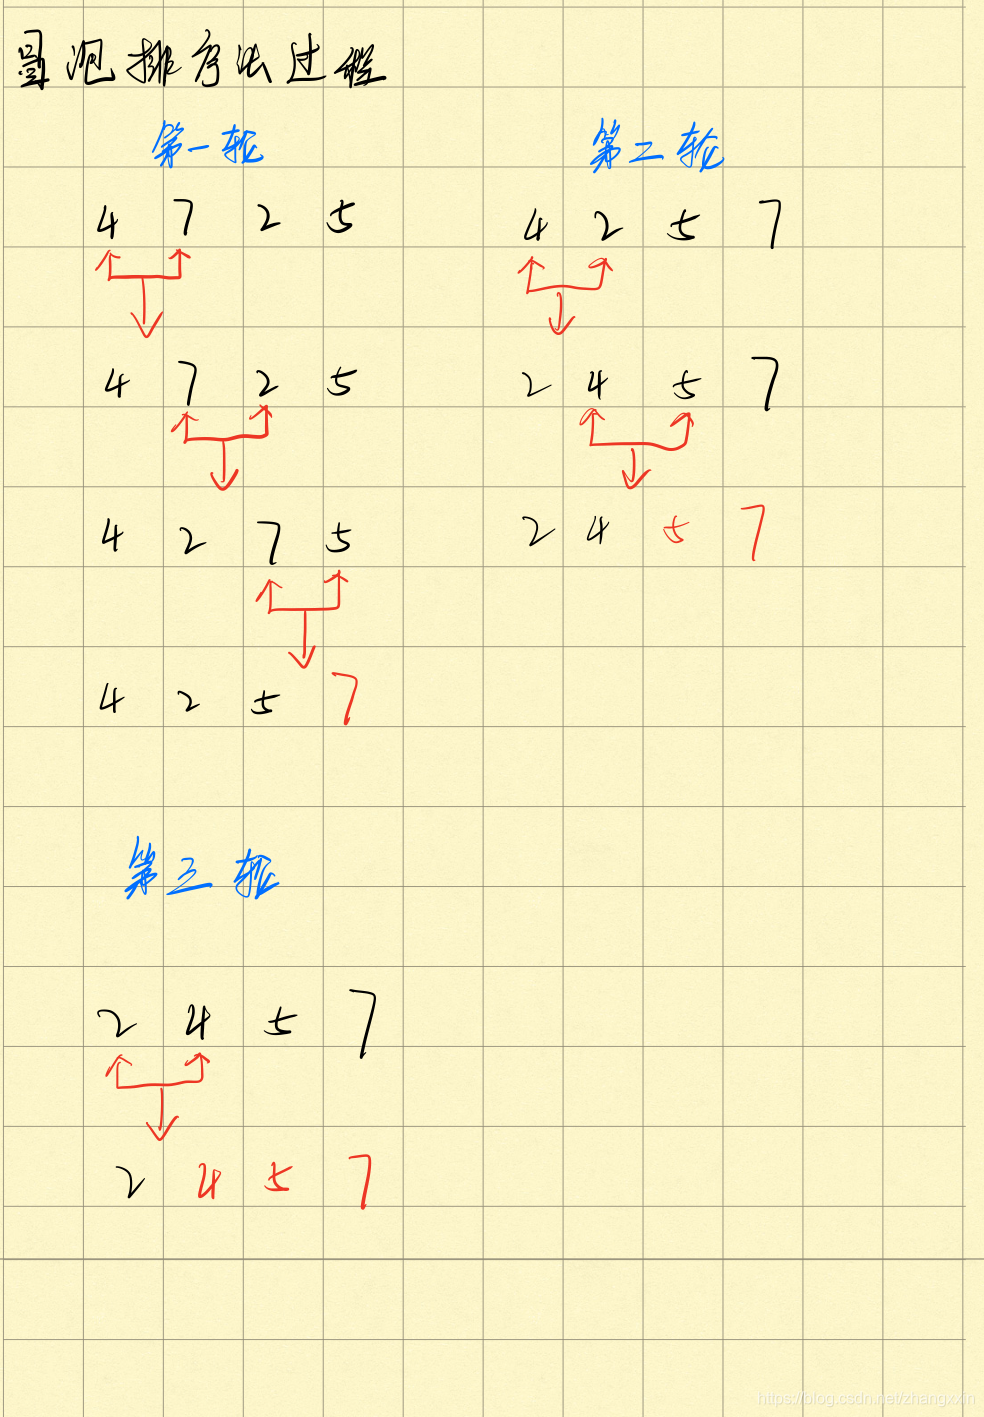 冒泡排序法过程
第一轮
4 7 2 5
4 7 2 5
4 2 7 5
4 2 5 7
第二轮
4 2 5 7
2 4 5 7
2 4 5 7
第三轮
2 4 5 7
2 4 5 7
https://blog.csdn.net/zhangxxin